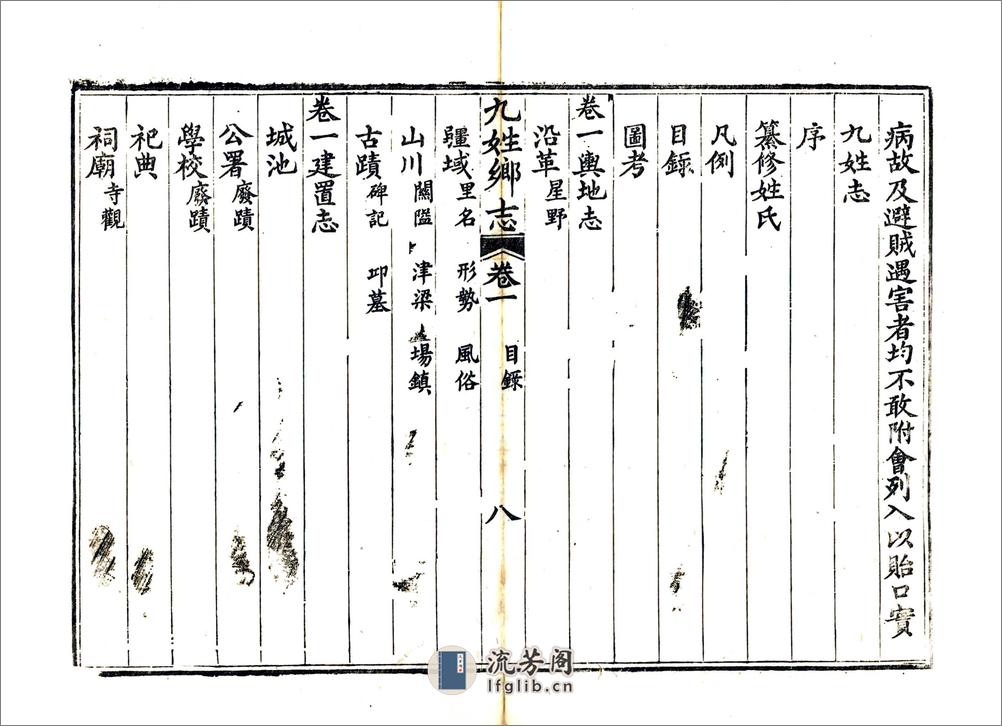 病故及避賊遇害者均不敢附會列入以貽口實
九姓志
序
纂修姓氏
凡例
目錄
圖考
卷一輿地志
沿革 星野
九姓鄉志 卷一 目錄 八
疆域 里名 形勢 風俗
山川 關隘 津梁 場鎮
古蹟 碑記 邱墓
卷一建置志
城池
公署 廢蹟
學校 廢蹟
祀典
祠廟 寺觀
流芳阁
lfglib.cn